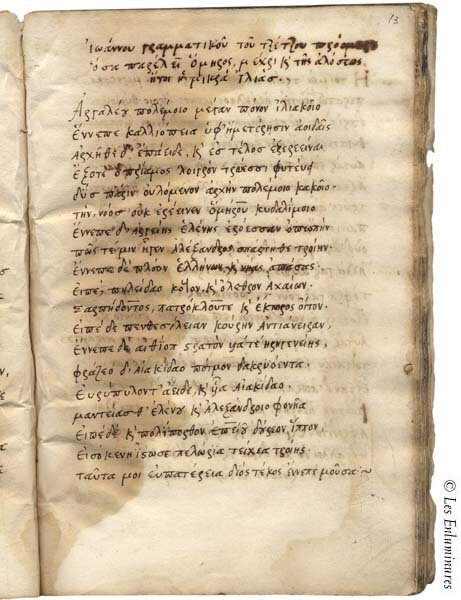 13
Ἰωάννου γραμματικοῦ τοῦ τζέτζου
ὅσα παρέλειψεν Ὅμηρος, μέχρι κ τῆς ἁλώσεως
ἤτοι ἡ μικρὰ ἰλιάς.
Ἀργαλέου πολέμοιο μέγαν πόνον ἰλιακοῖο
ἔννεπε καλλιόπεια ὑφ' ἡμετέρησιν ἀοιδαῖς
ἀρχῆθε δ' ἐπάειδε, κ ἐς τέλος ἐξερέεινε
ἐξ ὅτε ὁ πρίαμος λοιγὸν τρώεσσι φύτευσε
δύσπαριν οὐλόμενον ἀρχὴν πολέμοιο κακοῖο·
τὴν νόος οὐκ ἐρέεινεν ὁμήρου κυδαλίμοιο
ἔννεπε δ' ἀργείης ἑλένης ἐρόεσσαν ὀπωπὴν
πῶς τέ μιν ἦγεν ἀλέξανδρος σπάρτηθε τροίην·
ἔννεπε δὲ πλόον ἑλλήνων κ νῆας ἁπάσας·
εἰπὲ πηλείδαο κότον, κ ὄλεθρον ἀχαιῶν·
σαρπήδοντος, πατρόκλου τε κ ἕκτορος οἶτον·
εἰπὲ δὲ πενθεσίλειαν κούρην ἀντιάνειραν,
ἔννεπε δ' αἰθιόπων στρατὸν υἷά τε ἠριγενείης,
φράζεο δ' αἰακίδαο πότμον δακρυόεντα·
εὐρύπυλόν τ' ἄειδε, κ υἷα αἰακίδαο,
μαντείας θ' ἑλένου κ ἀλεξάνδροιο φονῆα
εἰπὲ δὲ κ πολίπορθον ἐπειοῦ δούρεον ἵππον,
πελώρια τείχεα τροίης·
ταῦτά μοι εὐπατέρεια διὸς τέκος ἔννεπε μοῦσα~
© Les Enluminures